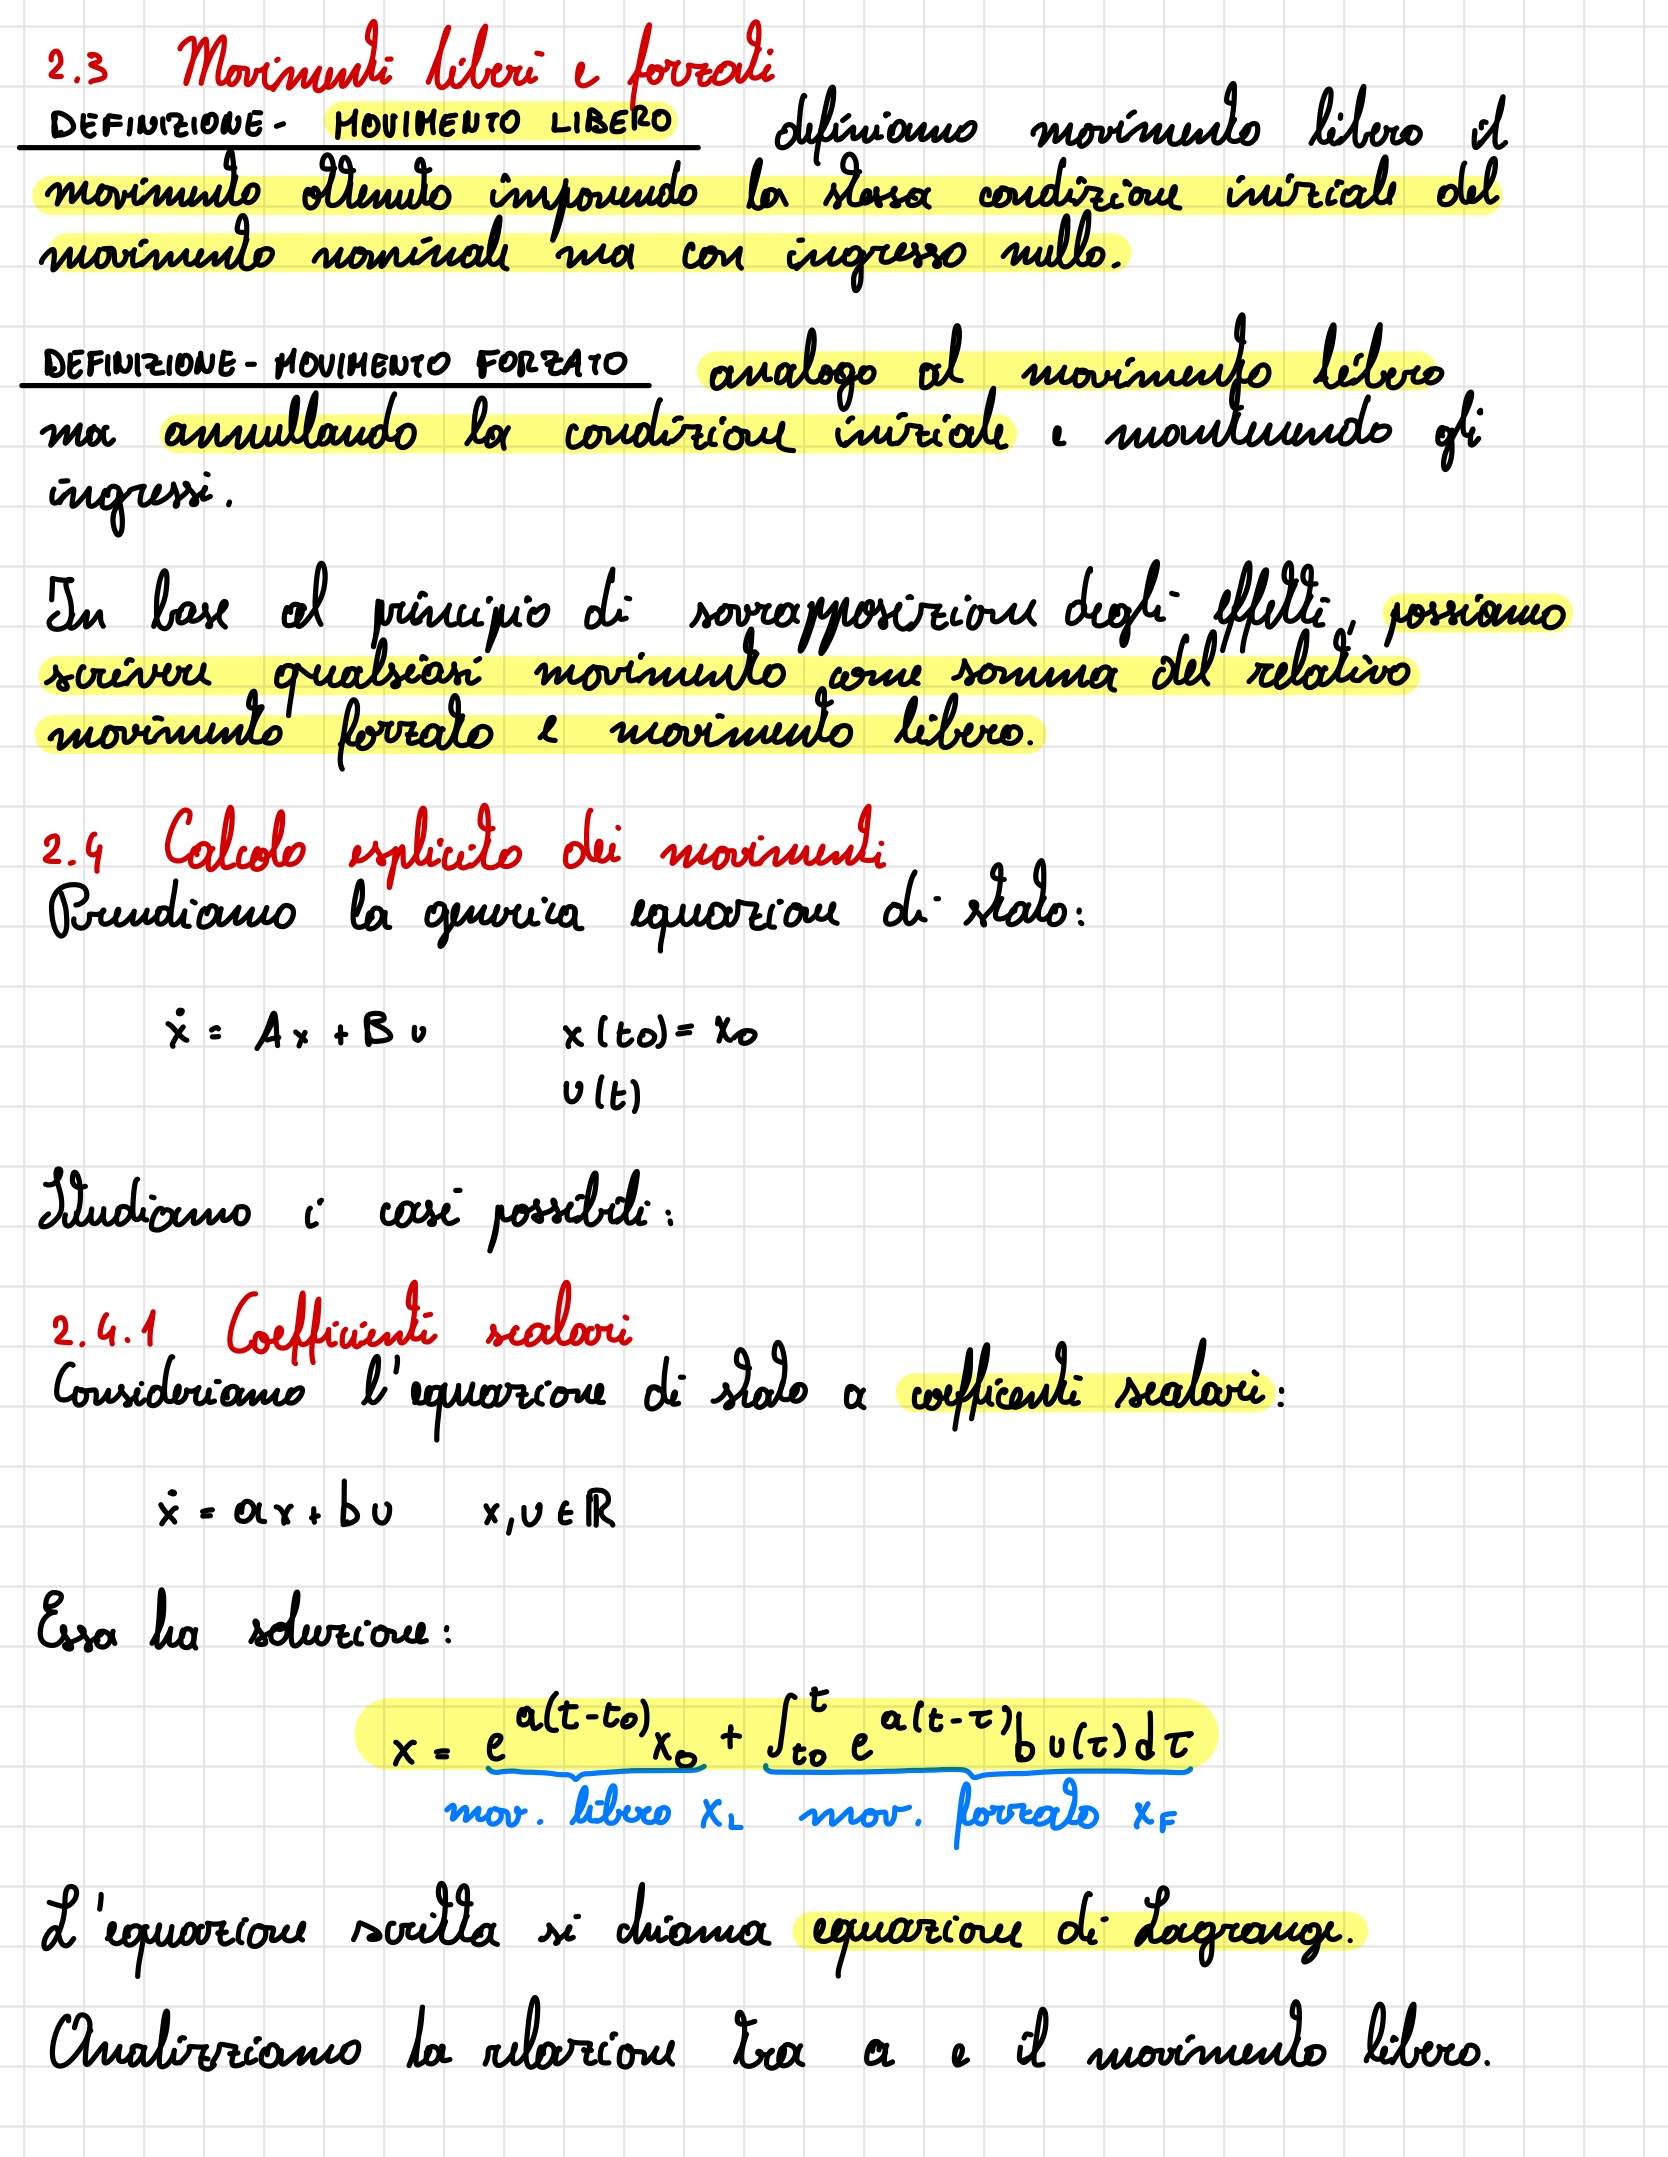 2.3 Movimenti liberi e forzati
DEFINIZIONE - MOVIMENTO LIBERO definiamo movimento libero il
movimento ottenuto imponendo la stessa condizione iniziale del
movimento nominale ma con ingresso nullo.
DEFINIZIONE - MOVIMENTO FORZATO analogo al movimento libero
ma annullando la condizione iniziale e mantenendo gli
ingressi.
In base al principio di sovrapposizione degli effetti, possiamo
scrivere qualsiasi movimento come somma del relativo
movimento forzato e movimento libero.
2.4 Calcolo esplicito dei movimenti
Prendiamo la generica equazione di stato:
ẋ = Ax + Bu x(t0) = x0
u(t)
Studiamo i casi possibili:
2.4.1 Coefficienti scalari
Consideriamo l'equazione di stato a cofficenti scalari:
ẋ = ax + bu x, u ∈ ℝ
Essa ha soluzione:
x = e^{a(t-t0)} x0 + ∫_{t0}^{t} e^{a(t-τ)} b u(τ) dτ
mov. libero x_L mov. forzato x_F
L'equazione scritta si chiama equazione di Lagrange.
Analizziamo la relazione tra a e il movimento libero.